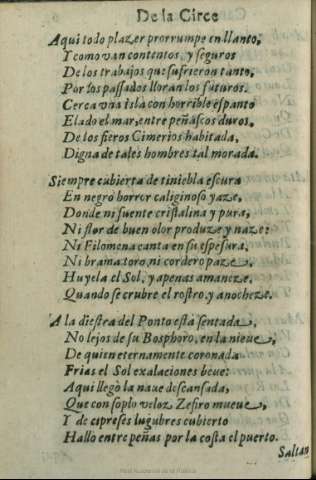 De la Circe
Aqui todo plazer prorrumpe en llanto,
Y como van contentos, y seguros
De los trabajos que sufrieron tanto,
Por los passados lloran los futuros.
Cerca vna isla con horrible espanto
Elado el mar, entre peñascos duros,
De los fieros Cimerios habitada,
Digna de tales hombres tal morada.
Siempre cubierta de tiniebla escura
En negro horror caliginoso yaze,
Donde ni fuente cristalina y pura,
Ni flor de buen olor produze y naze:
Ni Filomena canta en su espesura,
Ni brama toro, ni cordero paze,
Huyela el Sol, y apenas amanece,
Quando se crubre el rostro, y anocheze.
A la diestra del Ponto está sentada,
No lejos de su Bosphoro, en la nieue,
De quien eternamente coronada
Frias el Sol exalaciones beue:
Aqui llegò la naue descansada,
Que con soplo veloz Zefiro mueue,
Y de cipreses lugubres cubierto
Hallò entre peñas por la costa el puerto.
Saltan